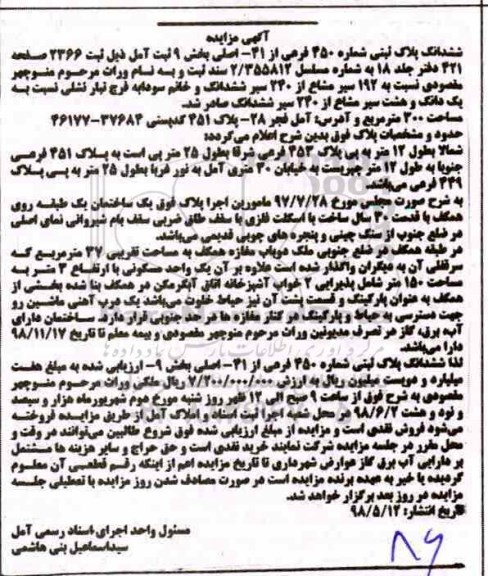 آگهی مزایده
ششدانگ پلاک ثبتی شماره ۴۵۰ فرعی از ۴۱- اصلی بخش ۹ ثبت آمل ذیل ثبت ۲۳۶۶ صفحه
۴۲۱ دفتر جلد ۱۸ به شماره مسلسل ۲/۳۵۵۸۱۲ سند ثبت و بنام وراث مرحوم منوچهر
مقصودی نسبت به ۱۹۲ سیر مشاع از ۲۴۰ سیر ششدانگ و خانم سودابه فرج تبار نشلی نسبت به
یک دانگ و هشت سیر مشاع از ۲۴۰ سیر ششدانگ صادر شد.
مساحت ۳۰۰ مترمربع و آدرس: آمل فجر ۲۸- پلاک ۴۵۱ کدپستی ۳۷۶۸۴-۴۶۱۷۷
حدود و مشخصات پلاک فوق بدین شرح اعلام می‌گردد:
شمالا بطول ۱۲ متر به پی پلاک ۴۵۳ فرعی شرقا بطول ۲۵ متر پی است به پلاک ۴۵۱ فرعی
جنوبا به طول ۱۲ متر به خیابان ۳۰ متری آمل به نور غربا بطول ۲۵ متر به پی پلاک
۴۴۹ فرعی می‌باشد.
به شرح صورت مجلس مورخ ۹۷/۷/۲۸ مامورین اجرا پلاک فوق یک ساختمان یک طبقه روی
همکف با قدمت ۴۰ سال ساخت با اسکلت فلزی با سقف طاق ضربی سقف بام شیروانی نمای اصلی
در ضلع جنوب از سنگ چینی و پنجره های چوبی قدیمی می‌باشد.
در طبقه همکف در ضلع جنوبی ملک دوباب مغازه همکف به مساحت تقریبی ۳۷ مترمربع که
سرقفلی آن به دیگران واگذار شده است علاوه بر آن یک واحد مسکونی با ارتفاع ۳ متر به
مساحت ۱۵۰ متر شامل پذیرایی ۲ خواب آشپزخانه اتاق آبگرمکن در همکف بنا شده بخشی از
همکف به عنوان پارکینگ و قسمت پشت آن نیز حیاط خلوت می‌باشد یک درب آهنی ماشین رو
جهت دسترسی به حیاط و پارکینگ در کنار مغازه ها در ضلع جنوبی قرار دارد. ساختمان دارای
آب، برق، گاز در تصرف مدیونین وراث مرحوم منوچهر مقصودی و بیمه معلم تا تاریخ ۹۸/۱۱/۱۷
دارا می‌باشد.
لذا ششدانگ پلاک ثبتی شماره ۴۵۰ فرعی از ۴۱- اصلی بخش ۹- ارزیابی شده به مبلغ هفت
میلیارد و دویست میلیون ریال به ارزش ۷/۲۰۰/۰۰۰/۰۰۰ ریال ملکی وراث مرحوم منوچهر
مقصودی به شرح فوق از ساعت ۹ صبح الی ۱۲ ظهر روز شنبه مورخ دوم شهریورماه هزار و سیصد
و نود و هشت ۹۸/۶/۲ در محل شعبه اجرا ثبت اسناد و املاک آمل از طریق مزایده فروخته
می‌شود فروش نقدی است و مزایده از مبلغ ارزیابی شده فوق شروع طالبین می‌توانند در وقت و
محل مقرر در جلسه مزایده شرکت نمایند خرید نقدی است و حق حراج و سایر هزینه ها مشتمل
بر دارایی آب برق گاز عوارض شهرداری تا تاریخ مزایده اعم از اینکه رقم قطعی آن معلوم
گردیده یا خیر به عهده برنده مزایده است در صورت مصادف شدن روز مزایده با تعطیلی جلسه
مزایده در روز بعد برگزار خواهد شد.
تاریخ انتشار: ۹۸/۵/۱۲
مسئول واحد اجرای اسناد رسمی آمل
سیداسماعیل بنی هاشمی
۸۹